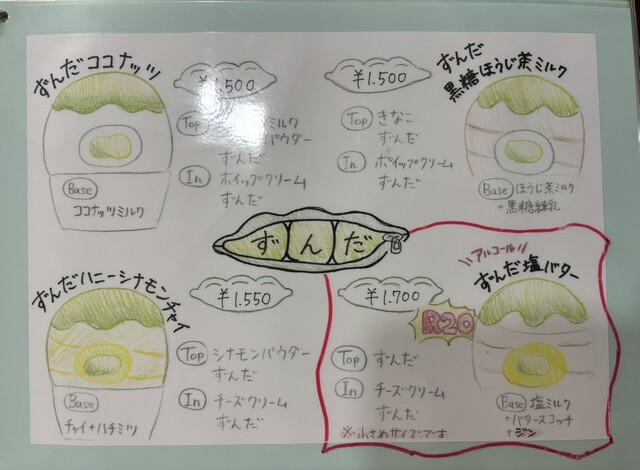 ずんだココナッツ
¥1,500
Top
ミルク
パウダー
ずんだ
In ホイップクリーム
ずんだ
Base
ココナッツミルク
ずんだ
黒糖ほうじ茶ミルク
¥1.500
Top きなこ
ずんだ
In ホイップクリーム
ずんだ
Base ほうじ茶ミルク
+黒糖練乳
ずんだ
ずんだハニーシナモンチャイ
¥1.550
Top シナモンパウダー
ずんだ
In チーズクリーム
ずんだ
Base
チャイ+ハチミツ
アルコール
ずんだ塩バター
¥1.700
R20
Top ずんだ
In チーズクリーム
ずんだ
※小さめサイズです
Base 塩ミルク
+バタースコッチ
+ジン